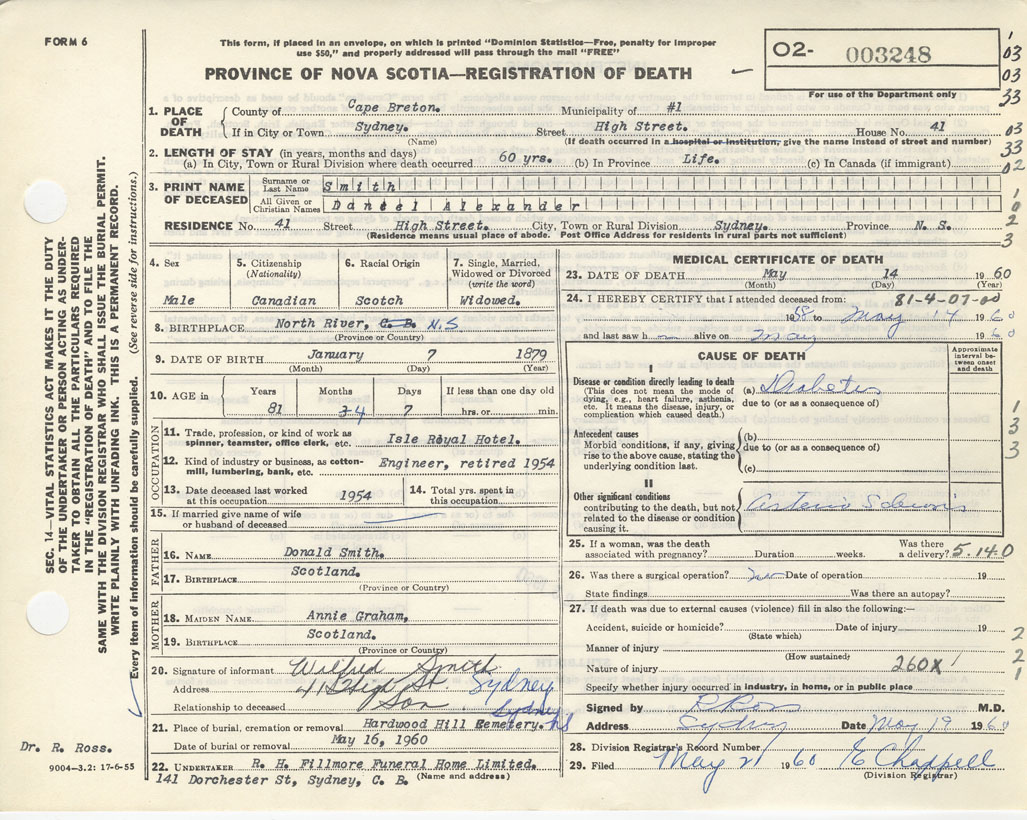 FORM 6
This form, if placed in an envelope, on which is printed "Dominion Statistics—Free, penalty for improper
use $50," and properly addressed will pass through the mail "FREE"
PROVINCE OF NOVA SCOTIA—REGISTRATION OF DEATH
O2- 003248
For use of the Department only
1. PLACE OF DEATH
County of Cape Breton. Municipality of #1
If in City or Town Sydney. Street High Street. House No. 41
(Name) (If death occurred in a hospital or institution, give the name instead of street and number)
2. LENGTH OF STAY (in years, months and days)
(a) In City, Town or Rural Division where death occurred 60 yrs. (b) In Province Life. (c) In Canada (if immigrant)
3. PRINT NAME OF DECEASED
Surname or Last Name Smith
All Given or Christian Names Daniel Alexander
RESIDENCE No. 41 Street High Street. City, Town or Rural Division Sydney. Province N. S.
(Residence means usual place of abode. Post Office Address for residents in rural parts not sufficient)
4. Sex Male
5. Citizenship (Nationality) Canadian
6. Racial Origin Scotch
7. Single, Married, Widowed or Divorced (write the word) Widowed.
8. BIRTHPLACE North River, C. B. N.S
(Province or Country)
9. DATE OF BIRTH January 7 1879
(Month) (Day) (Year)
10. AGE in Years Months Days If less than one day old
81 3 4 7 hrs. or min.
OCCUPATION
11. Trade, profession, or kind of work as spinner, teamster, office clerk, etc. Isle Royal Hotel.
12. Kind of industry or business, as cotton-mill, lumbering, bank, etc. Engineer, retired 1954
13. Date deceased last worked at this occupation 1954
14. Total yrs. spent in this occupation
15. If married give name of wife or husband of deceased
FATHER
16. NAME Donald Smith.
17. BIRTHPLACE Scotland.
(Province or Country)
MOTHER
18. MAIDEN NAME Annie Graham,
19. BIRTHPLACE Scotland.
(Province or Country)
20. Signature of informant Wilfred Smith
Address 41 High St. Sydney
Relationship to deceased Son Sydney NS
21. Place of burial, cremation or removal Hardwood Hill Cemetery.
Date of burial or removal May 16, 1960
22. UNDERTAKER R. H. Fillmore Funeral Home Limited.
141 Dorchester St, Sydney, C. B. (Name and address)
MEDICAL CERTIFICATE OF DEATH
23. DATE OF DEATH May 14 1960
(Month) (Day) (Year)
24. I HEREBY CERTIFY that I attended deceased from: 81-4-07-00
1958 to May 14 1960
and last saw h alive on May 1960
CAUSE OF DEATH
Approximate interval between onset and death
I
Disease or condition directly leading to death (a) Diabetes
(This does not mean the mode of dying, e.g., heart failure, asthenia, etc. It means the disease, injury, or complication which caused death.)
due to (or as a consequence of)
Antecedent causes
Morbid conditions, if any, giving rise to the above cause, stating the underlying condition last.
(b)
due to (or as a consequence of)
(c)
II
Other significant conditions contributing to the death, but not related to the disease or condition causing it. Arterio Sclerosis
25. If a woman, was the death associated with pregnancy? Duration weeks. Was there a delivery? 5.140
26. Was there a surgical operation? no Date of operation 19
State findings Was there an autopsy?
27. If death was due to external causes (violence) fill in also the following:—
Accident, suicide or homicide? Date of injury 19
(State which)
Manner of injury
(How sustained)
Nature of injury 260X
Specify whether injury occurred in industry, in home, or in public place
Signed by R Ross M.D.
Address Sydney Date May 19 1960
28. Division Registrar's Record Number
29. Filed May 21 1960 E Chappell
(Division Registrar)
SEC. 14—VITAL STATISTICS ACT MAKES IT THE DUTY
OF THE UNDERTAKER OR PERSON ACTING AS UNDER-
TAKER TO OBTAIN ALL THE PARTICULARS REQUIRED
IN THE "REGISTRATION OF DEATH" AND TO FILE THE
SAME WITH THE DIVISION REGISTRAR WHO SHALL ISSUE THE BURIAL PERMIT.
WRITE PLAINLY WITH UNFADING INK. THIS IS A PERMANENT RECORD.
Every item of information should be carefully supplied. (See reverse side for instructions.)
Dr. R. Ross.
9004-3.2: 17-6-55
1
03
03
33
03
33
02
1
0
2
3
1
3
3
2
2
1